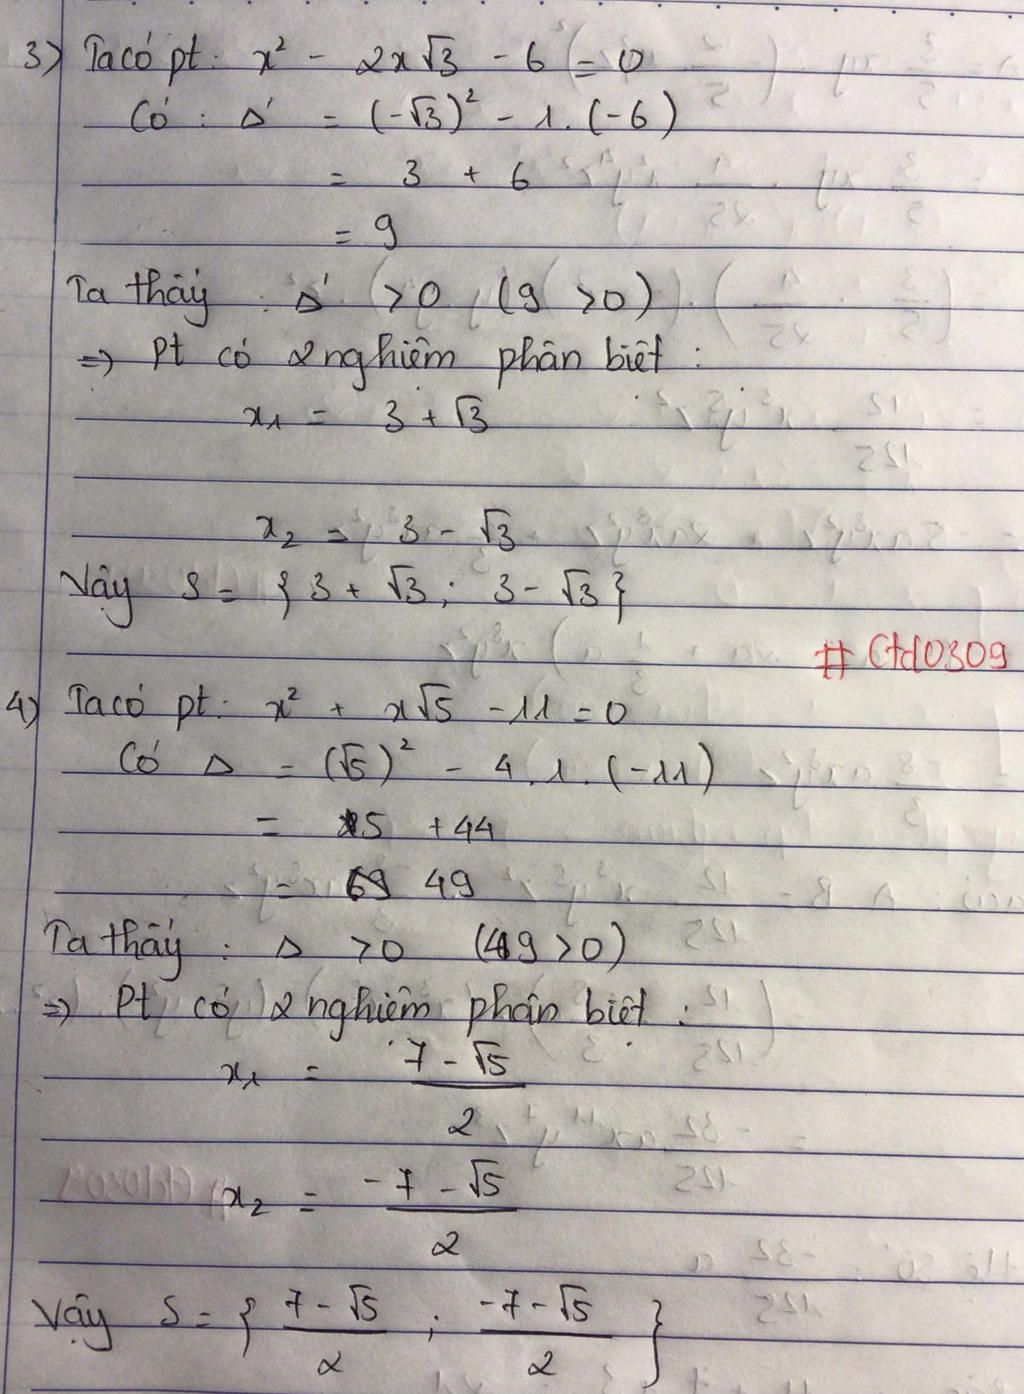 3) Ta có pt: x² - 2x√3 - 6 = 0
Có : Δ' = (-√3)² - 1.(-6)
= 3 + 6
= 9
Ta thấy : Δ' > 0 (9 > 0)
=> Pt có 2 nghiệm phân biệt :
x₁ = 3 + √3
x₂ = 3 - √3
Vậy S = { 3 + √3 ; 3 - √3 }
# Ctd0309
4) Ta có pt: x² + x√5 - 11 = 0
Có Δ = (√5)² - 4.1.(-11)
= 5 + 44
= 49
Ta thấy : Δ > 0 (49 > 0)
=> Pt có 2 nghiệm phân biệt :
x₁ = (7 - √5)/2
x₂ = (-7 - √5)/2
Vậy S = { (7 - √5)/2 ; (-7 - √5)/2 }